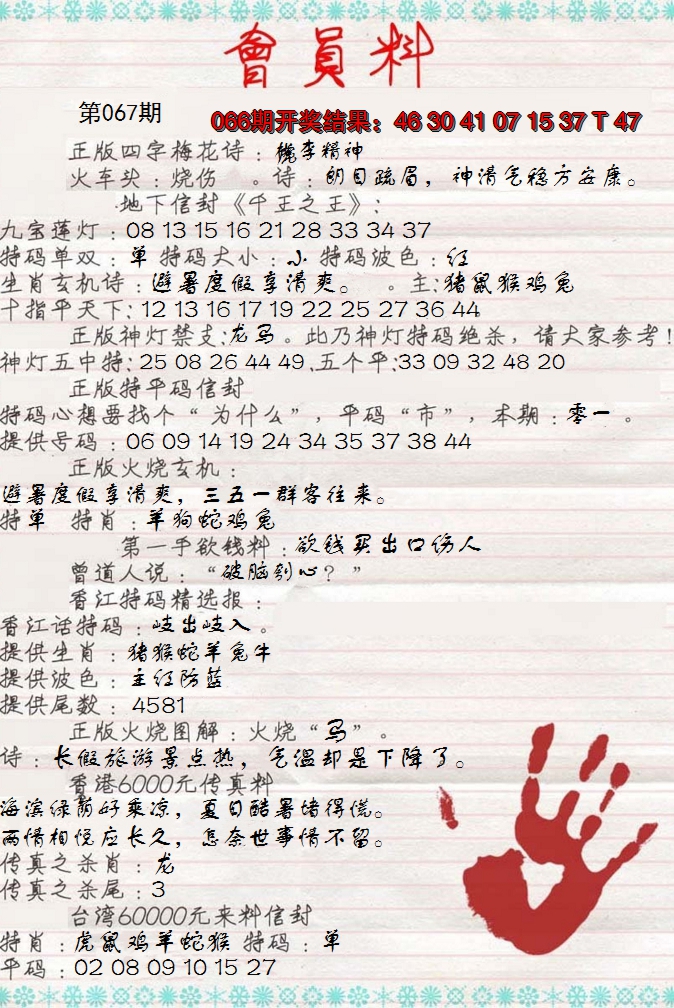 會員料
第067期
066期开奖结果：46 30 41 07 15 37 T 47
正版四字梅花诗：桃李精神
火车头：烧伤 。诗：朗目疏眉，神清气稳方安康。
地下信封《千王之王》：
九宝莲灯：08 13 15 16 21 28 33 34 37
特码单双：单 特码大小：小 特码波色：红
生肖玄机诗：避暑度假享清爽。 。主：猪鼠猴鸡兔
十指平天下：12 13 16 17 19 22 25 27 36 44
正版神灯禁支：龙马。此乃神灯特码绝杀，请大家参考！
神灯五中特：25 08 26 44 49.五个平：33 09 32 48 20
正版特平码信封
特码心想要找个“为什么”，平码“市”，本期：零一。
提供号码：06 09 14 19 24 34 35 37 38 44
正版火烧玄机：
避暑度假享清爽，三五一群客往来。
特单 特肖：羊狗蛇鸡兔
第一手欲钱料：欲钱买出口伤人
曾道人说：“破脑刳心？”
香江特码精选报：
香江话特码：歧出歧入。
提供生肖：猪猴蛇羊兔牛
提供波色：主红防蓝
提供尾数：4581
正版火烧图解：火烧“马”。
诗：长假旅游景点热，气温却是下降了。
香港6000元传真料
海滨绿荫好乘凉，夏日酷暑堵得慌。
两情相悦应长久，怎奈世事情不留。
传真之杀肖：龙
传真之杀尾：3
台湾60000元来料信封
特肖：虎鼠鸡羊蛇猴 特码：单
平码：02 08 09 10 15 27